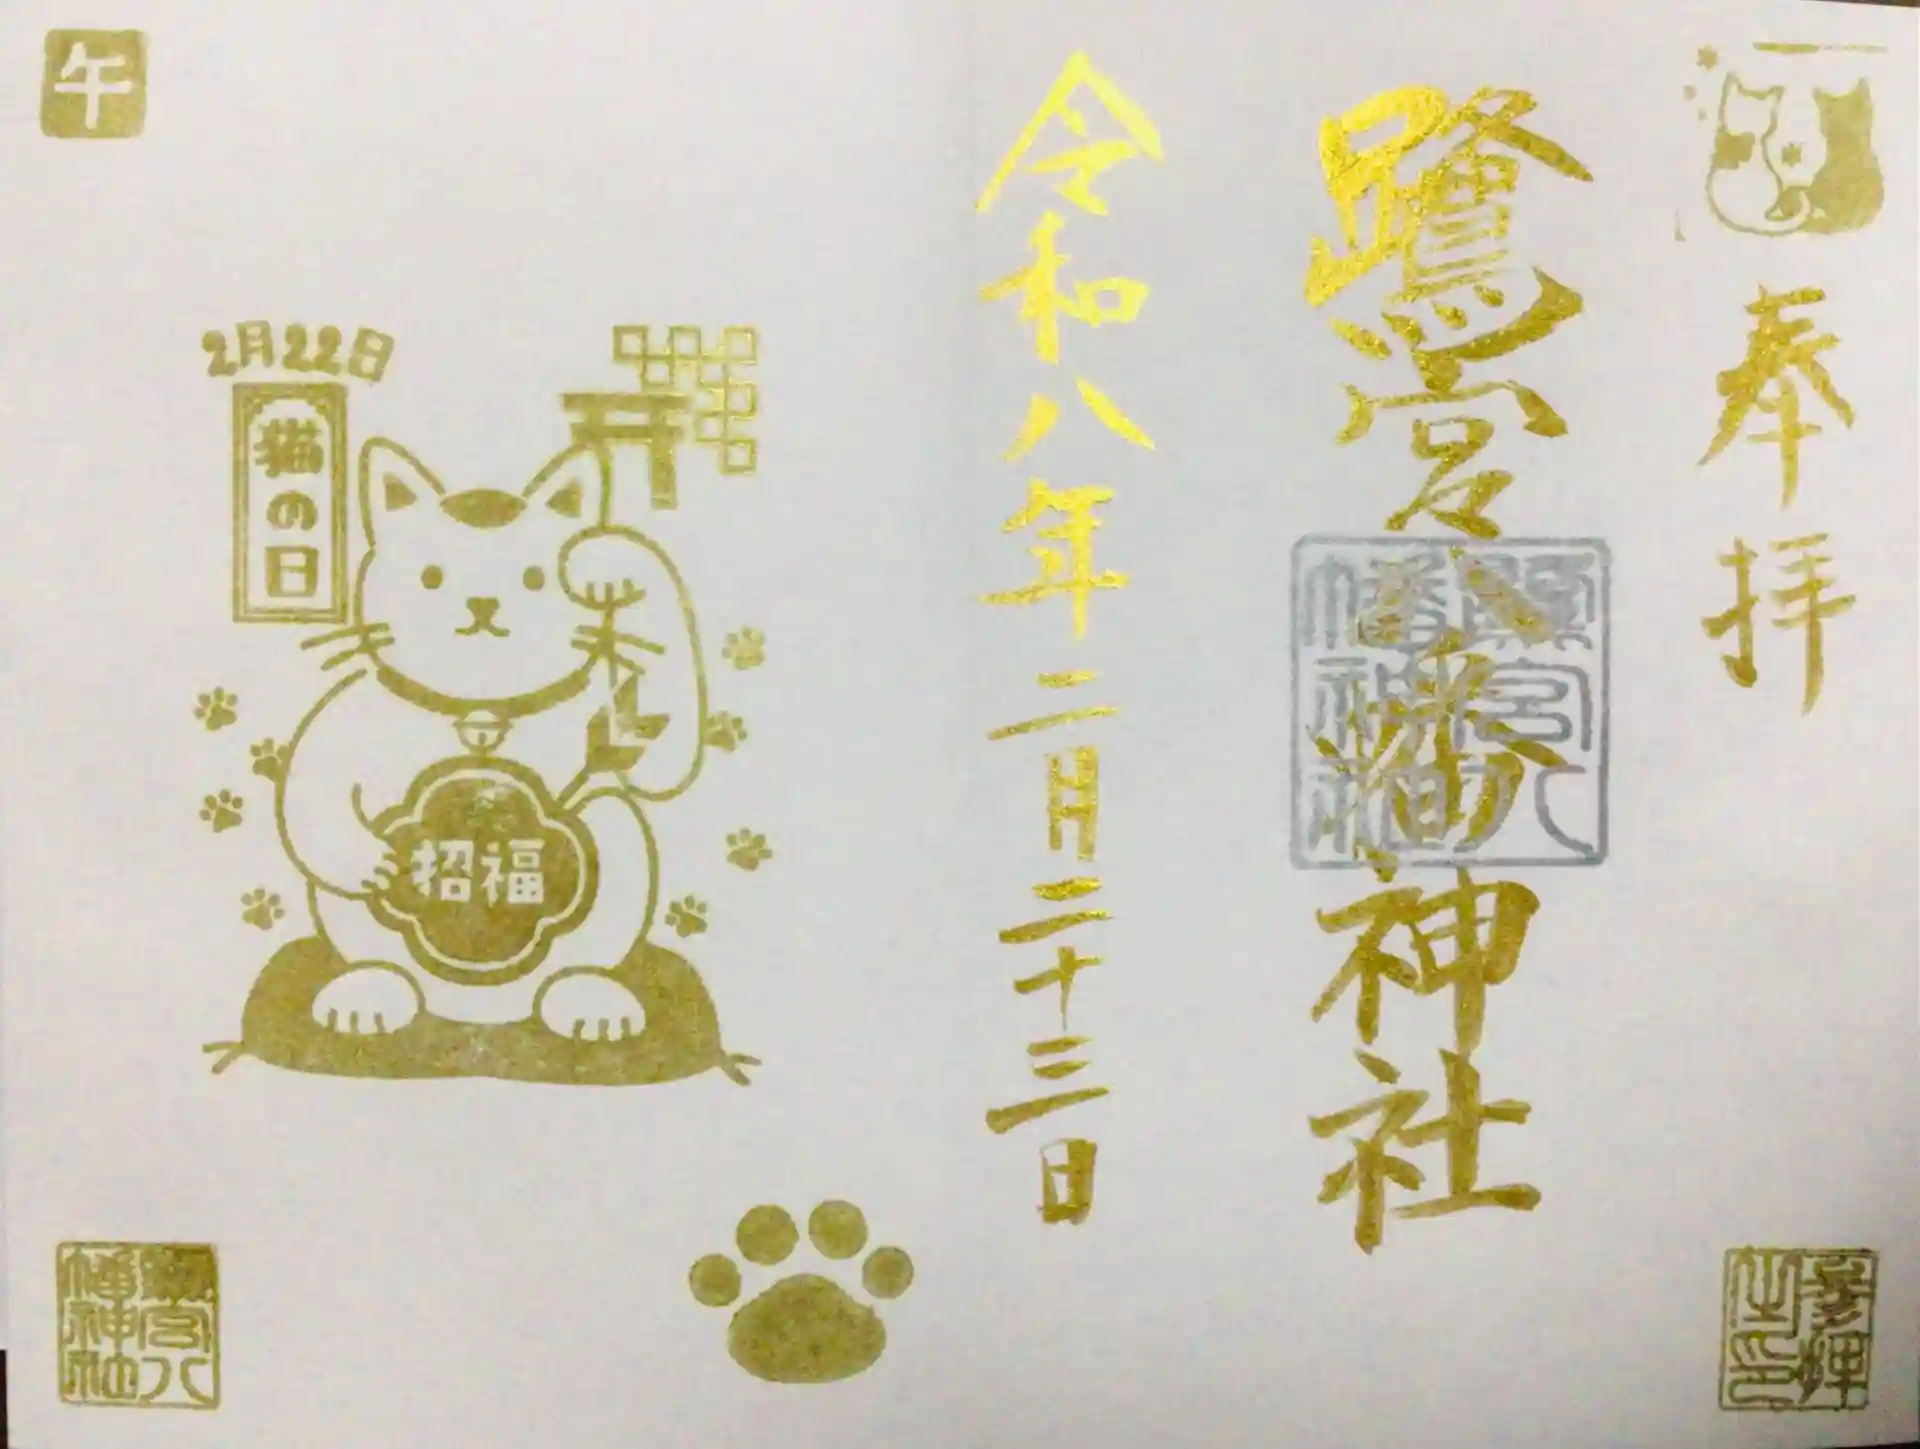 奉拝
鷺宮八幡神社
鷺宮八幡神社
令和八年二月二十三日
午
2月22日
猫の日
招福
参拝之印
鷺宮八幡神社